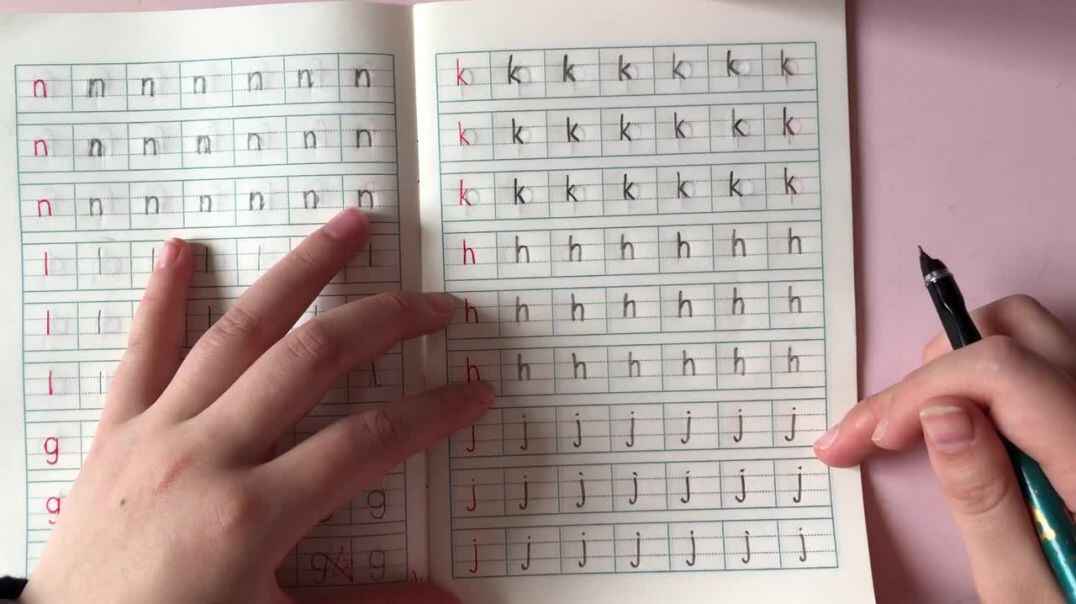 n n n n n n n
n n n n n n n
n n n n n n n
l l l l l l
l l l l
l l l
g
g g
g g
k k k k k k k
k k k k k k k
k k k k k k k
h h h h h h h
h h h h h h h
h h h h h h h
j j j j j j j
j j j j j j j
j j j j j j j